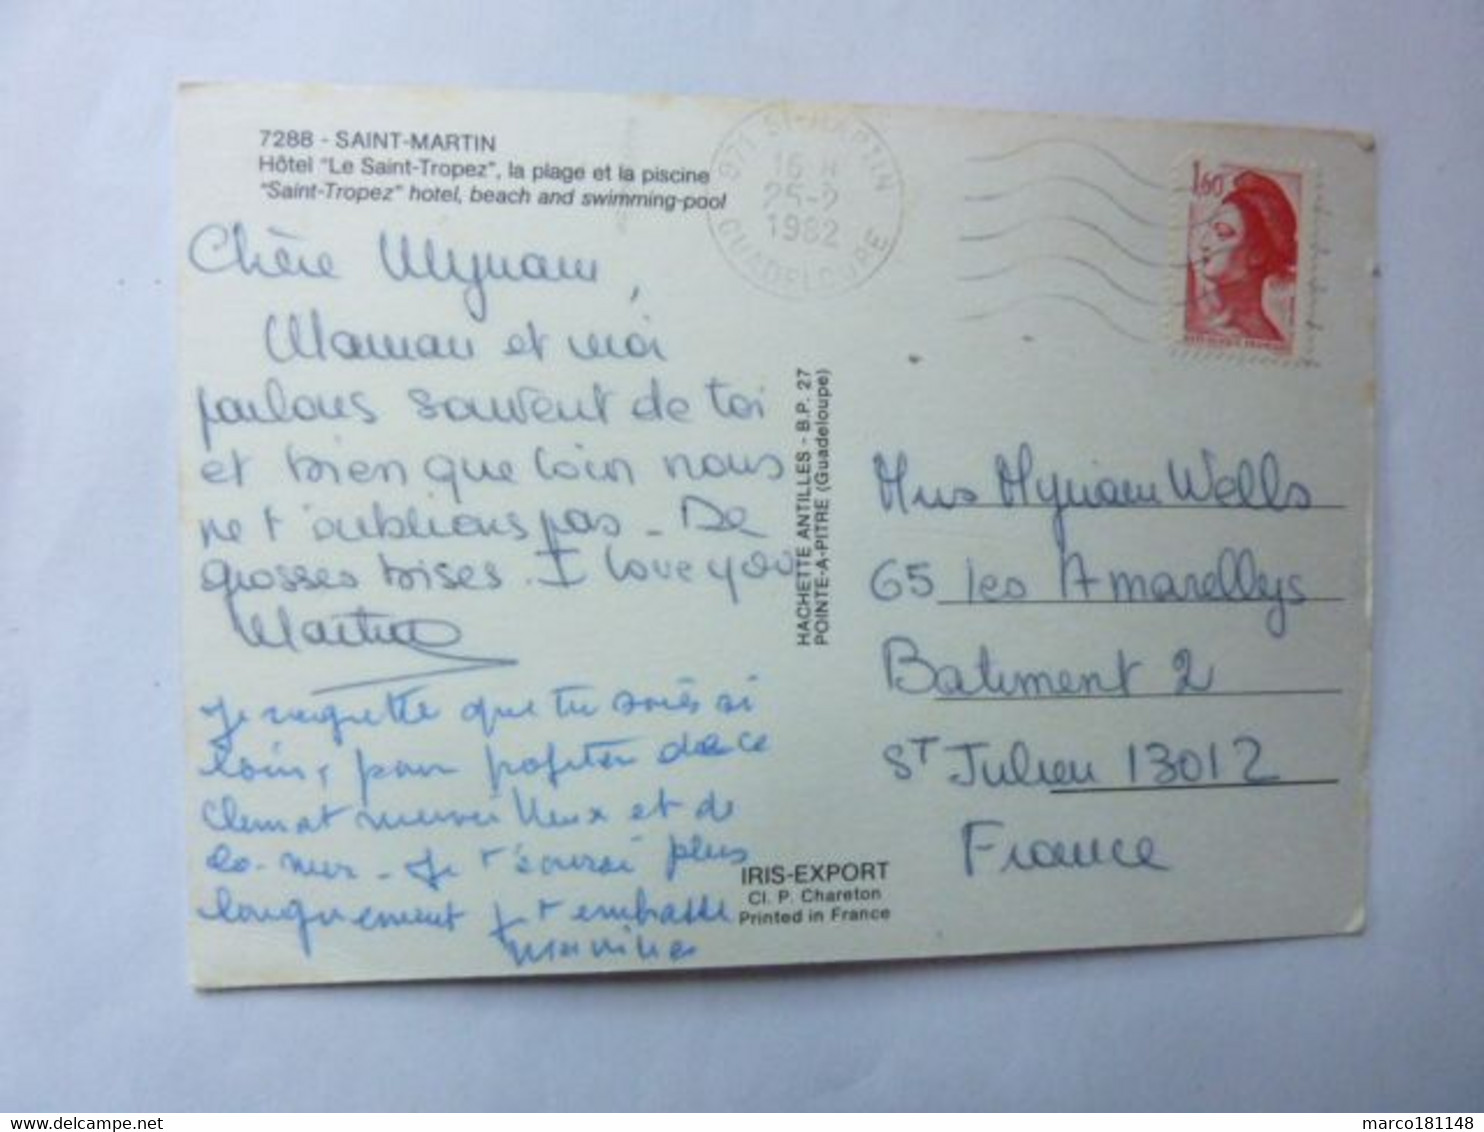 7288 - SAINT-MARTIN
Hôtel "Le Saint-Tropez", la plage et la piscine
"Saint-Tropez" hotel, beach and swimming-pool
Chère Myriam,
Maman et moi
parlons souvent de toi
et bien que loin nous
ne t'oublions pas - De
grosses bises. I love you
Martine
Je regrette que tu sois si
loin, pour profiter de ce
climat merveilleux et de
la mer - Je t'écrirai plus
longuement Je t'embrasse
HACHETTE ANTILLES - B.P. 27
POINTE-A-PITRE (Guadeloupe)
IRIS-EXPORT
Cl. P. Chareton
Printed in France
971 ST-MARTIN
16 H
25-2
1982
GUADELOUPE
1,60
REPUBLIQUE FRANCAISE
Miss Myriam Wells
65 les Amarellys
Batiment 2
ST Julien 13012
France
marco181148